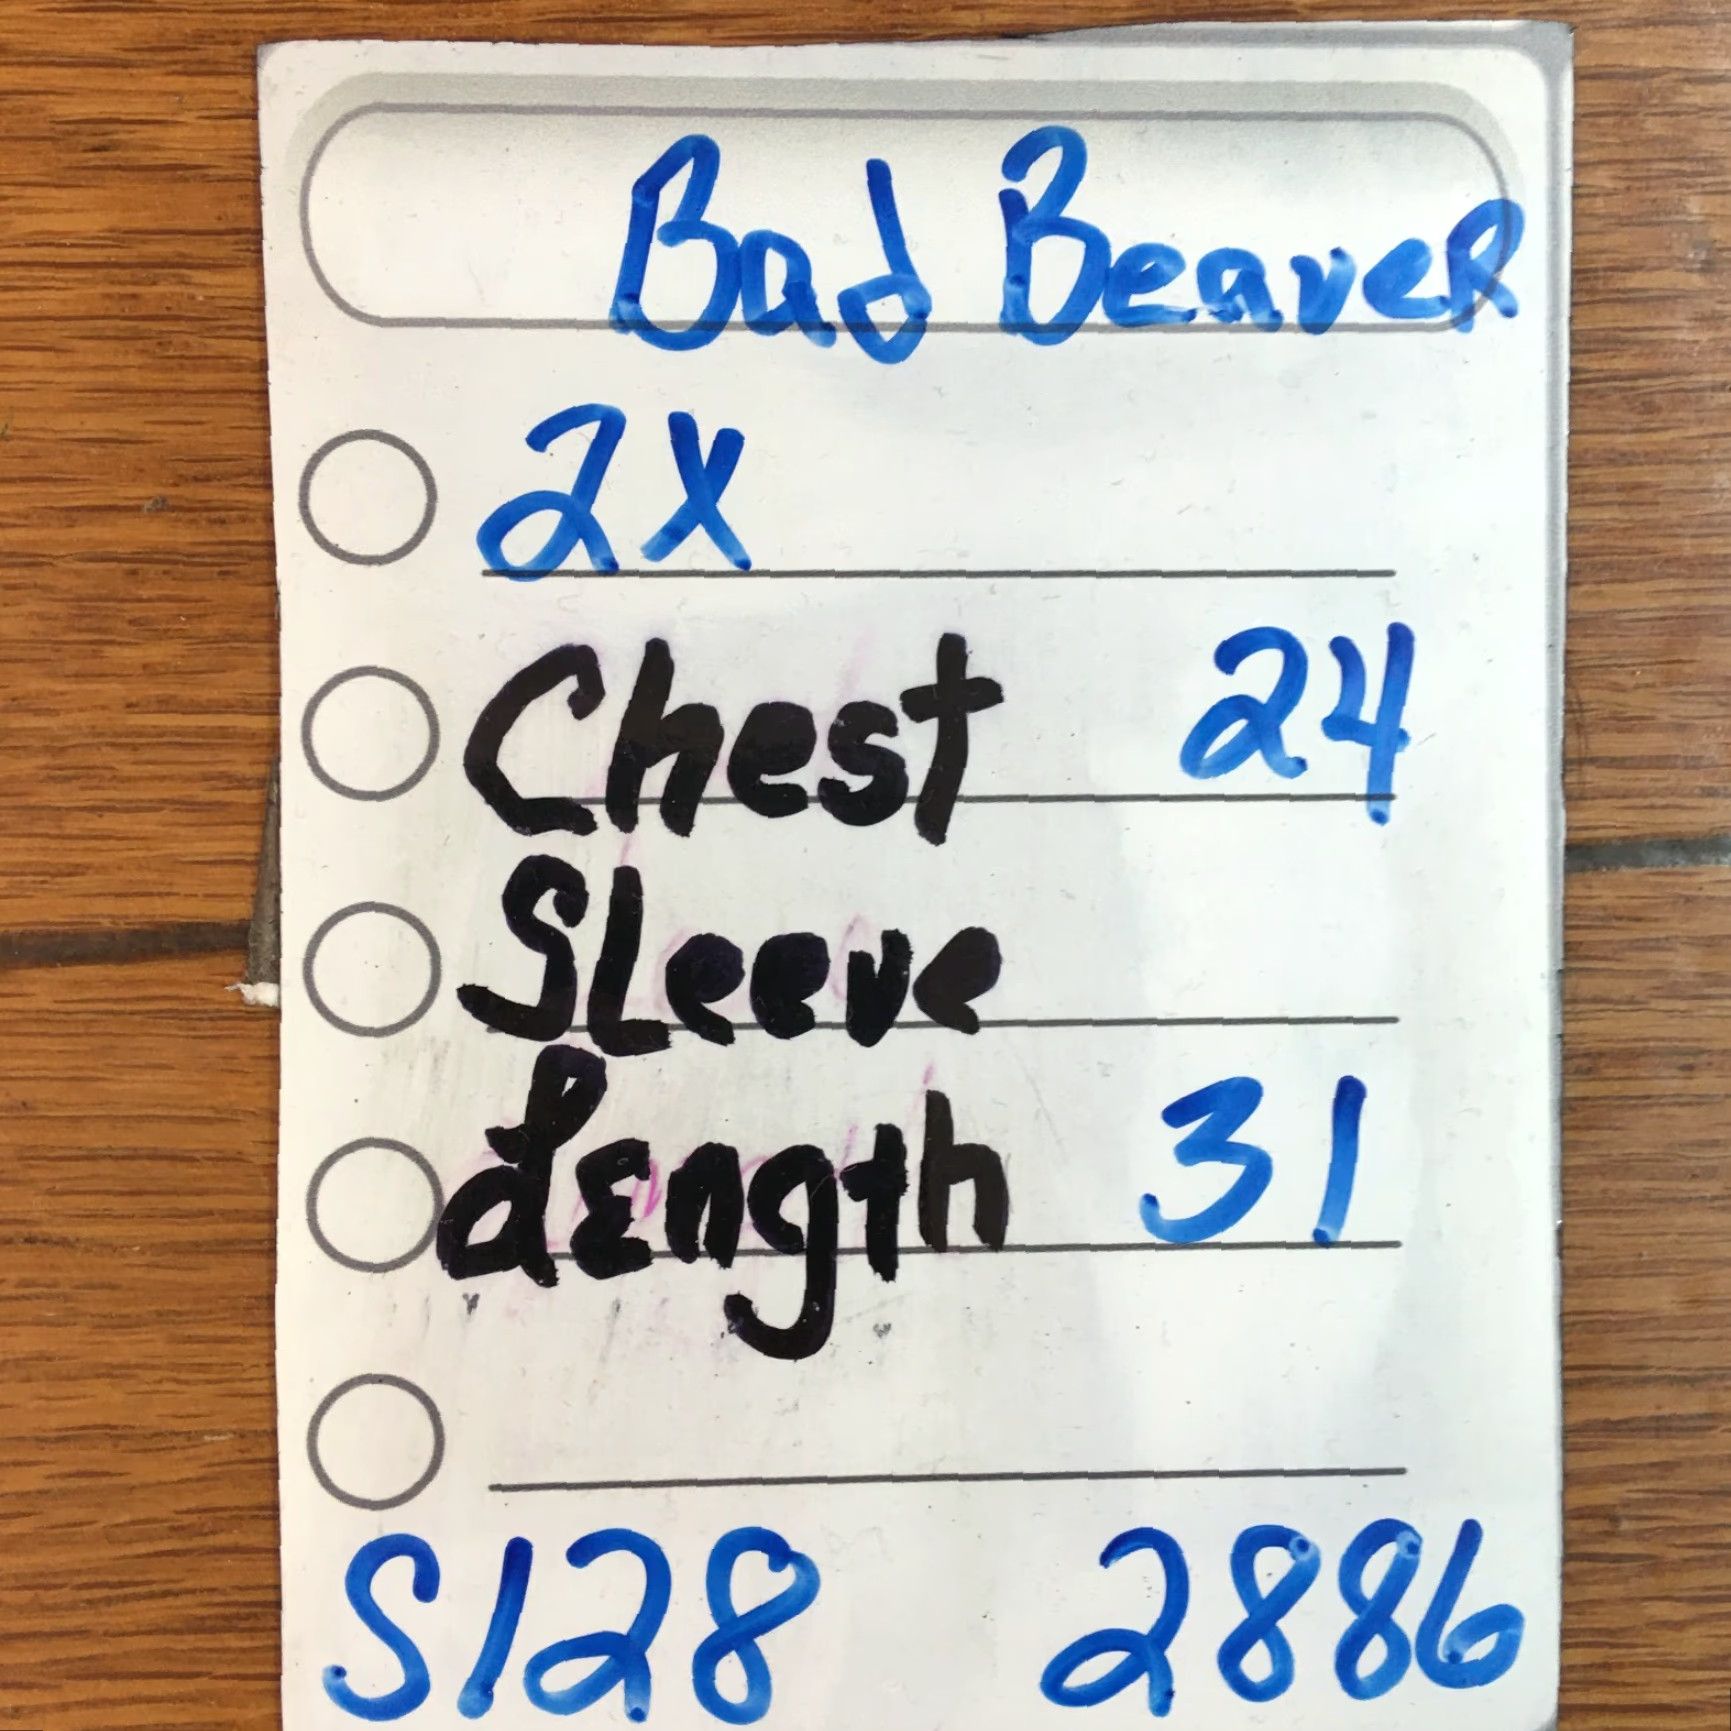 Bad BeaveR
2X
Chest 24
SLeeve
Length 31
S128 2886